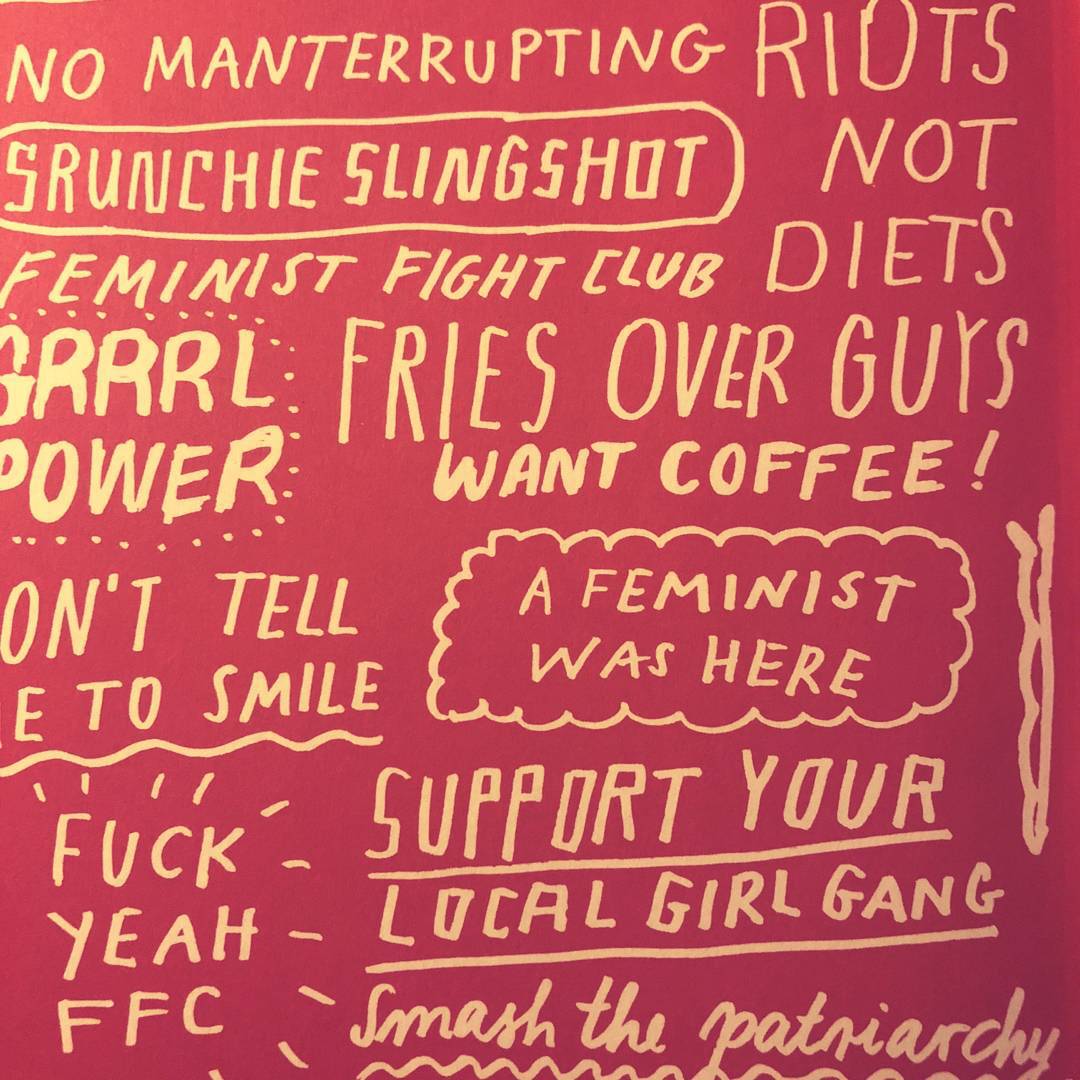 NO MANTERRUPTING
RIOTS
NOT
DIETS
SRUNCHIE SLINGSHOT
FEMINIST FIGHT CLUB
GRRRL
POWER
FRIES OVER GUYS
WANT COFFEE!
ON'T TELL
E TO SMILE
A FEMINIST
WAS HERE
FUCK
YEAH
FFC
SUPPORT YOUR
LOCAL GIRL GANG
Smash the patriarchy